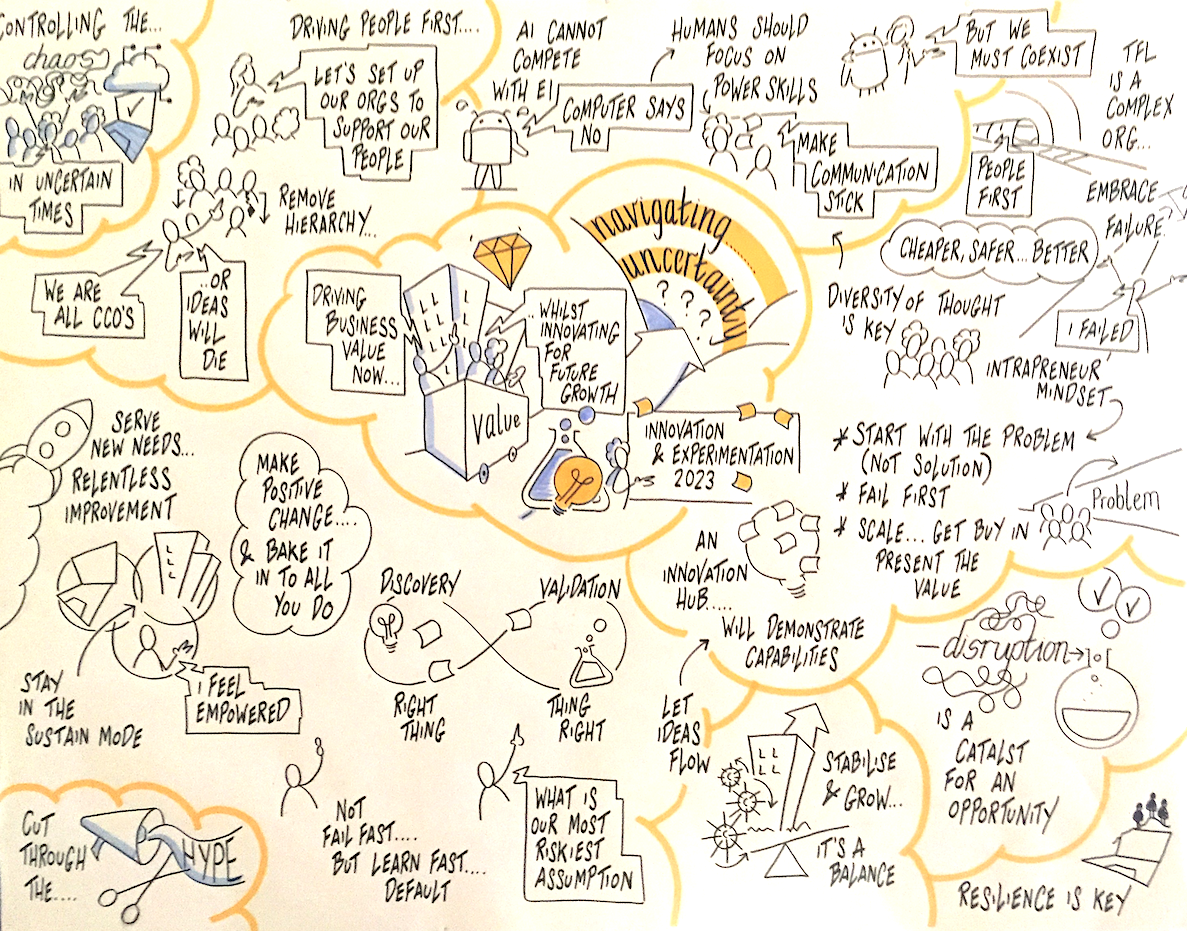 CONTROLLING THE...
chaos
IN UNCERTAIN
TIMES
DRIVING PEOPLE FIRST....
LET'S SET UP
OUR ORGS TO
SUPPORT OUR
PEOPLE
AI CANNOT
COMPETE
WITH EI
COMPUTER SAYS
NO
HUMANS SHOULD
FOCUS ON
POWER SKILLS
MAKE
COMMUNICATION
STICK
BUT WE
MUST COEXIST
TFL
IS A
COMPLEX
ORG...
PEOPLE
FIRST
REMOVE
HIERARCHY...
WE ARE
ALL CCO'S
..OR
IDEAS
WILL
DIE
DRIVING
BUSINESS
VALUE
NOW...
value
.. WHILST
INNOVATING
FOR
FUTURE
GROWTH
navigating
uncertainty
? ? ?
INNOVATION
& EXPERIMENTATION
2023
EMBRACE
FAILURE?
CHEAPER, SAFER... BETTER
I FAILED
DIVERSITY OF THOUGHT
IS KEY
INTRAPRENEUR
MINDSET
* START WITH THE PROBLEM
(NOT SOLUTION)
* FAIL FIRST
* SCALE... GET BUY IN
PRESENT THE
VALUE
Problem
SERVE
NEW NEEDS...
RELENTLESS
IMPROVEMENT
MAKE
POSITIVE
CHANGE....
& BAKE IT
IN TO ALL
YOU DO
STAY
IN THE
SUSTAIN MODE
I FEEL
EMPOWERED
DISCOVERY
VALIDATION
RIGHT
THING
THING
RIGHT
AN
INNOVATION
HUB.....
WILL DEMONSTRATE
CAPABILITIES
LET
IDEAS
FLOW
disruption
IS A
CATALST
FOR AN
OPPORTUNITY
STABILISE
& GROW...
IT'S A
BALANCE
CUT
THROUGH
THE....
HYPE
NOT
FAIL FAST....
BUT LEARN FAST....
DEFAULT
WHAT IS
OUR MOST
RISKIEST
ASSUMPTION
RESILIENCE IS KEY